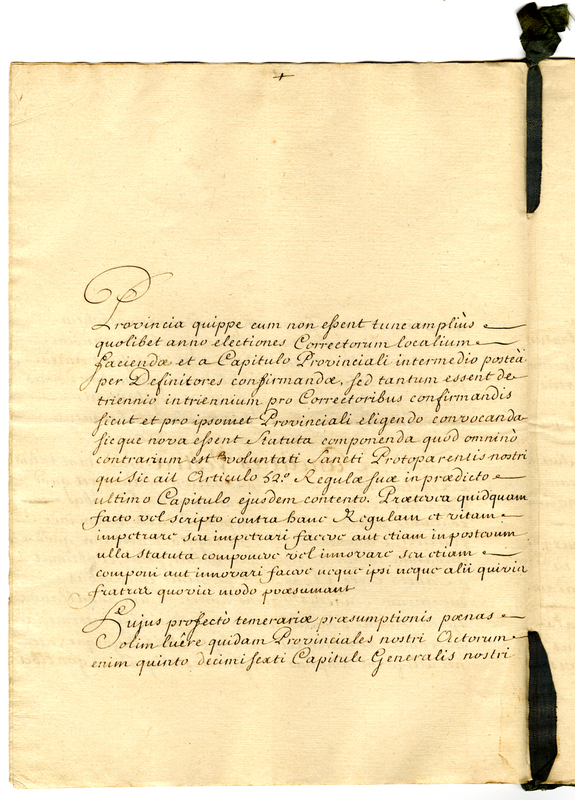 Provincia quippe cum non essent tunc ampliùs
quolibet anno electiones Correctorum localium
faciendæ et a Capitulo Provinciali intermedio posteà
per Definitores confirmandæ, sed tantum essent de
triennio in triennium pro Correctoribus confirmandis
sicut et pro ipsomet Provinciali eligendo convocanda
sicque nova essent Statuta componenda quod omninò
contrarium est voluntati Sancti Protoparentis nostri
qui sic ait Articulo 52.º Regulæ suæ in prædicto
ultimo Capitulo ejusdem contento. Præterea quidquam
facto vel scripto contra hanc Regulam et vitam
impetrare seu impetrari facere aut etiam in posterum
ulla statuta componere vel innovare seu etiam
componi aut innovari facere neque ipsi neque alii quivis
fratres quovis modo præsumant
Hujus profectò temerariæ præsumptionis pœnas
olim luêre quidam Provinciales nostri Actorum
enim quinto decimi sexti Capituli Generalis nostri